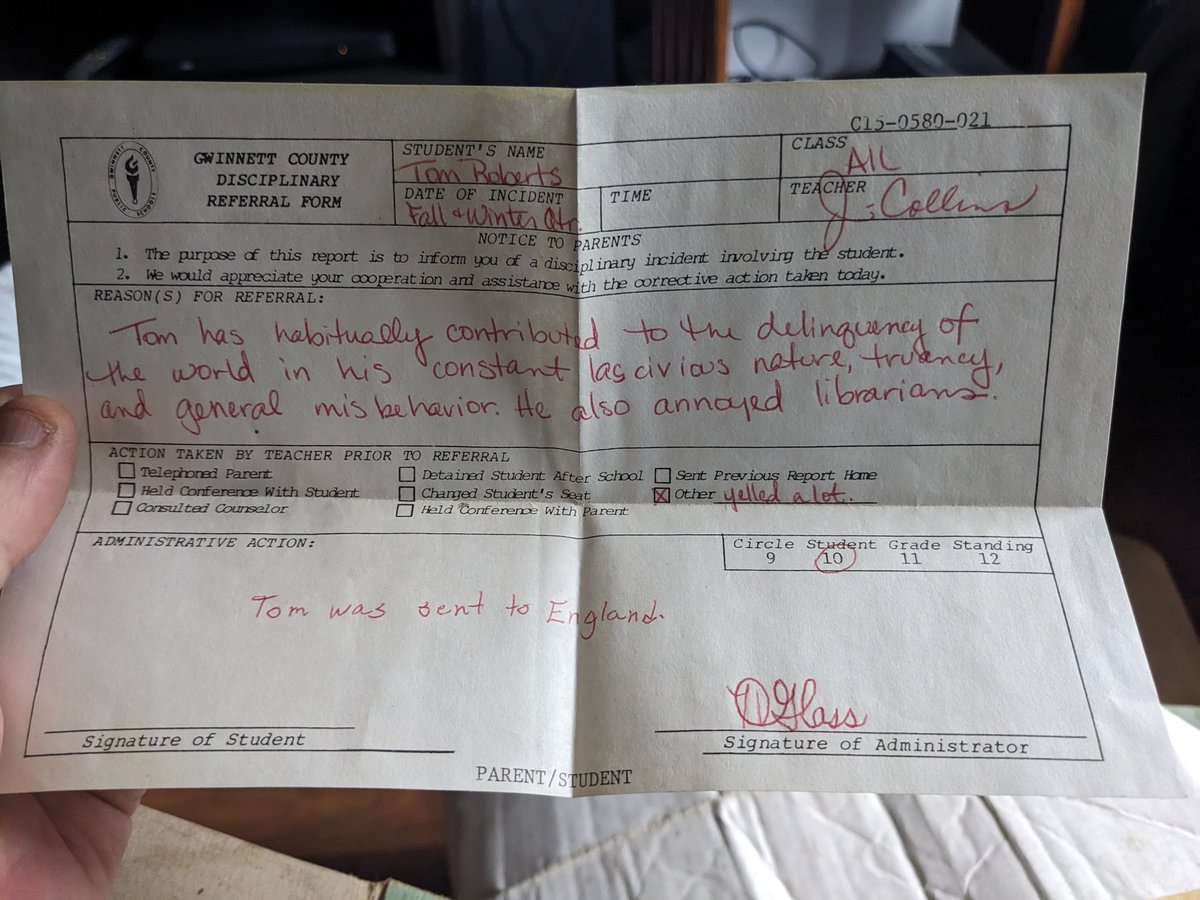 C15-0580-021
GWINNETT COUNTY
DISCIPLINARY
REFERRAL FORM
GWINNETT COUNTY
PUBLIC SCHOOLS
STUDENT'S NAME
Tom Roberts
CLASS
All
DATE OF INCIDENT
Fall & Winter Qtr.
TIME
TEACHER
J. Collins
NOTICE TO PARENTS
1. The purpose of this report is to inform you of a disciplinary incident involving the student.
2. We would appreciate your cooperation and assistance with the corrective action taken today.
REASON(S) FOR REFERRAL:
Tom has habitually contributed to the delinquency of
the world in his constant lascivious nature, truancy,
and general misbehavior. He also annoyed librarians.
ACTION TAKEN BY TEACHER PRIOR TO REFERRAL
Telephoned Parent
Detained Student After School
Sent Previous Report Home
Held Conference With Student
Changed Student's Seat
Other yelled a lot.
Consulted Counselor
Held Conference With Parent
ADMINISTRATIVE ACTION:
Circle Student Grade Standing
9 10 11 12
Tom was sent to England.
D Glass
Signature of Student
Signature of Administrator
PARENT/STUDENT